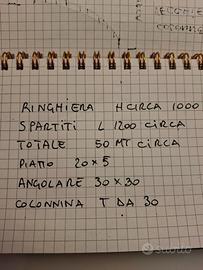 RINGHIERA H CIRCA 1000
SPARTITI L 1200 CIRCA
TOTALE 50 MT CIRCA
PIATTO 20 x 5
ANGOLARE 30 x 30
COLONNINA T DA 30
subito